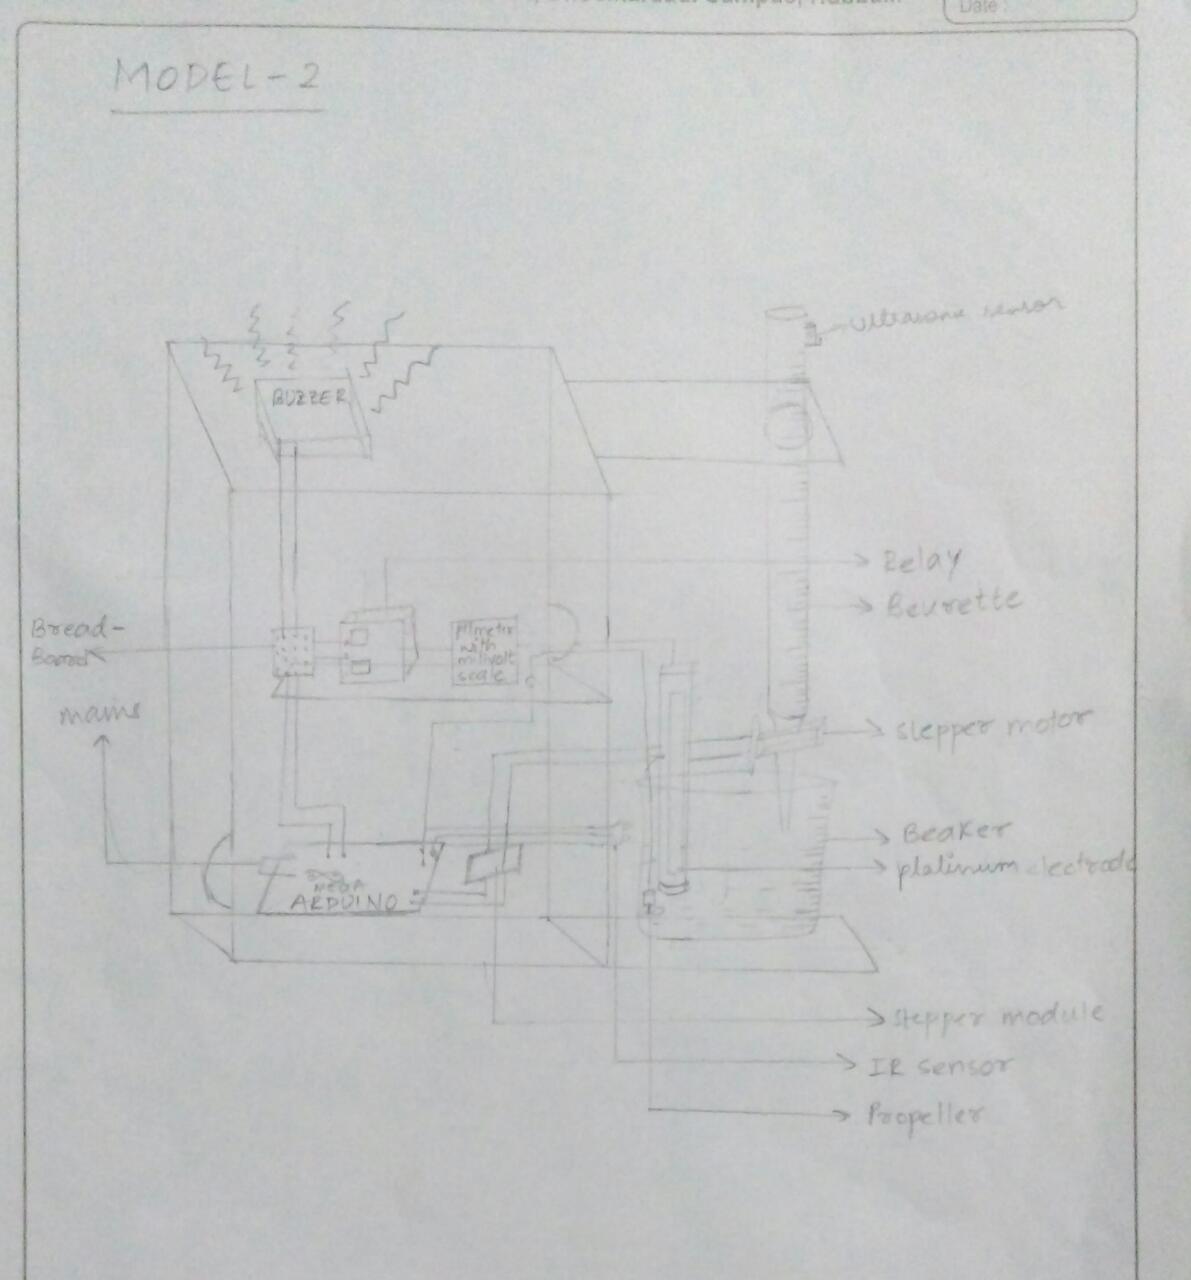 Date :
MODEL-2
ultrasonic sensor
BUZZER
Relay
Beurette
Bread-
Board
PH meter
with
millivolt
scale
mains
stepper motor
Beaker
platinum electrode
MEGA
ARDUINO
stepper module
IR sensor
Propeller